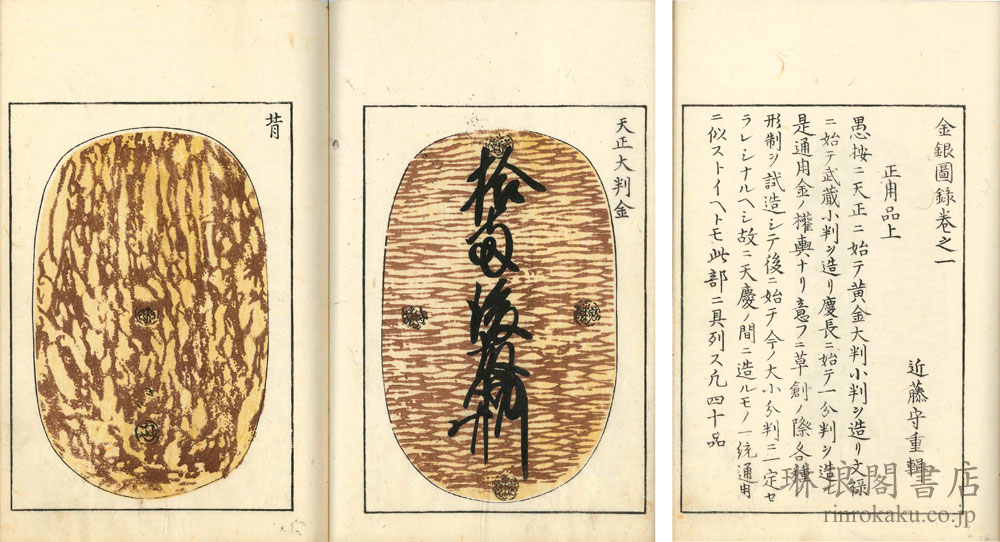 金銀圖録卷之一
近藤守重輯
正用品上
愚按ニ天正ニ始テ黄金大判小判ヲ造リ文禄
ニ始テ武蔵小判ヲ造リ慶長ニ始テ一分判ヲ造ル
是通用金ノ權輿ナリ意フニ草創ノ際各種
形制ヲ試造シテ後ニ始テ今ノ大小分判ニ一定セ
ラレシナルヘシ故ニ天慶ノ間ニ造ルモノ一統通用
ニ似ストイヘトモ此部ニ具列ス凡四十品
天正大判金
拾両後藤
背
琳琅閣書店
rinrokaku.co.jp